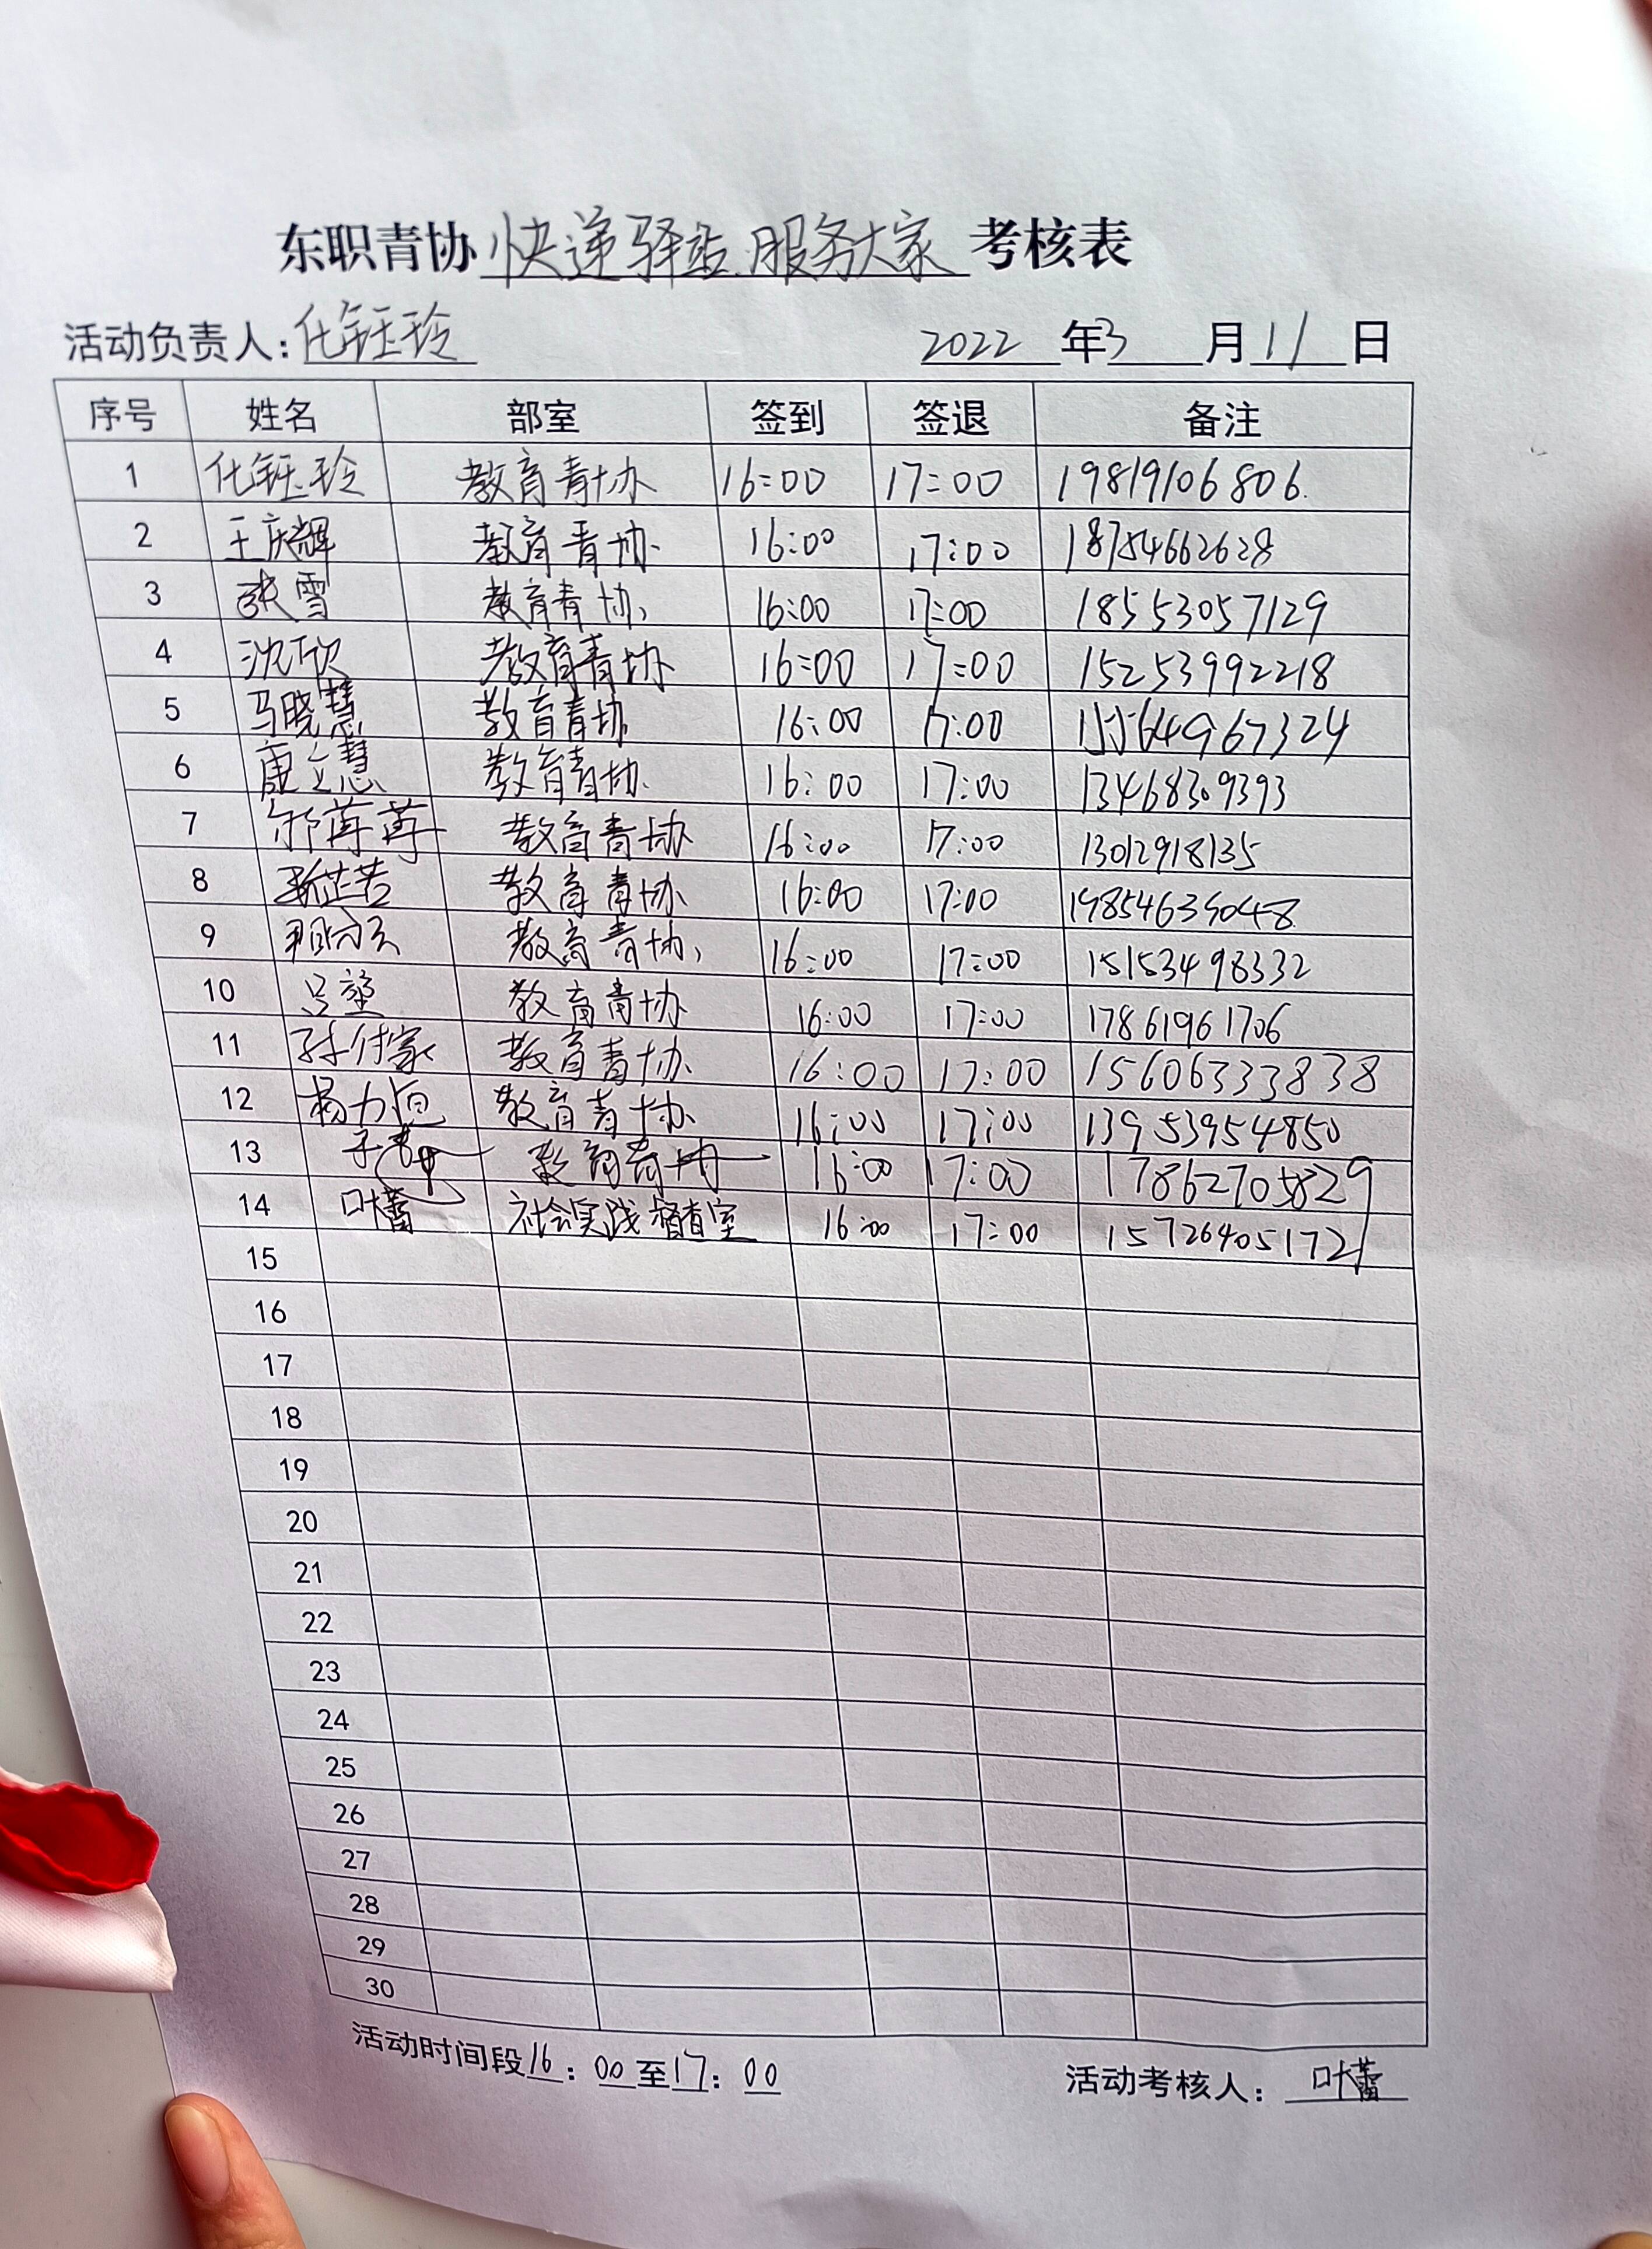 东职青协 快递驿站.服务大家 考核表
活动负责人：化钰玲 2022年3月11日
序号 姓名 部室 签到 签退 备注
1 化钰玲 教育青协 16:00 17:00 19819106806.
2 王庆辉 教育青协 16:00 17:00 18754662628
3 张雪 教育青协 16:00 17:00 18553057129
4 沈欣 教育青协 16:00 17:00 15253992218
5 马晓慧 教育青协 16:00 17:00 15564967324
6 唐立慧 教育青协 16:00 17:00 13468309393
7 邹苒苒 教育青协 16:00 17:00 13012918135
8 芷若 教育青协 16:00 17:00 19854639048
9 教育青协 16:00 17:00 15153498332
10 吕 教育青协 16:00 17:00 17861961706
11 孙付家 教育青协 16:00 17:00 15606333838
12 杨力 教育青协 16:00 17:00 13953954850
13 教育青协 16:00 17:00 17862705829
14 叶蕾 社会实践督查室 16:00 17:00 15726405172
15
16
17
18
19
20
21
22
23
24
25
26
27
28
29
30
活动时间段16：00至17：00 活动考核人：叶蕾